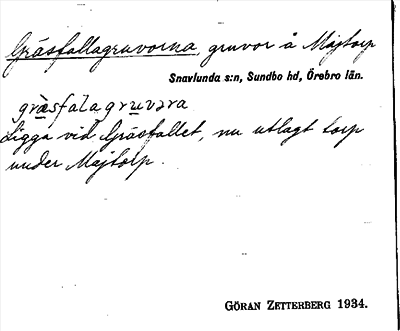 Gräsfallagruvorna, gruvor å Majtorp
Snavlunda s:n, Sundbo hd, Örebro län.
gräsfalagruvɔra
Ligga vid Gräsfallet, nu utlagt torp
under Majtorp.
GÖRAN ZETTERBERG 1934.